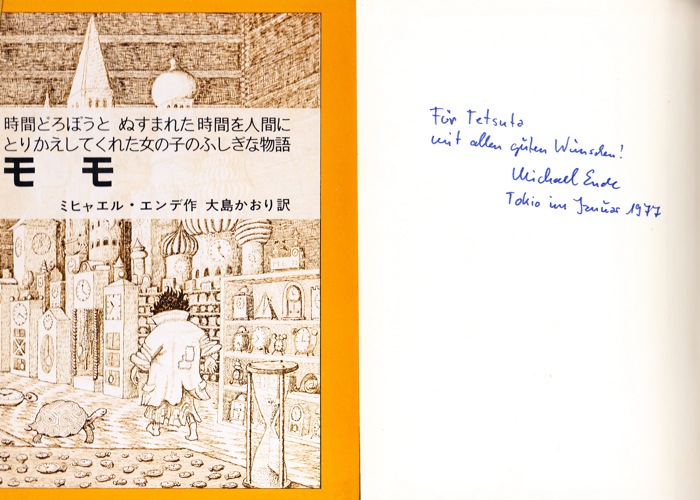 時間どろぼうと ぬすまれた時間を人間に
とりかえしてくれた女の子のふしぎな物語
モモ
ミヒャエル・エンデ作 大島かおり訳
Für Tetsuta
mit allen guten Wünschen!
Michael Ende
Tokio im Januar 1977